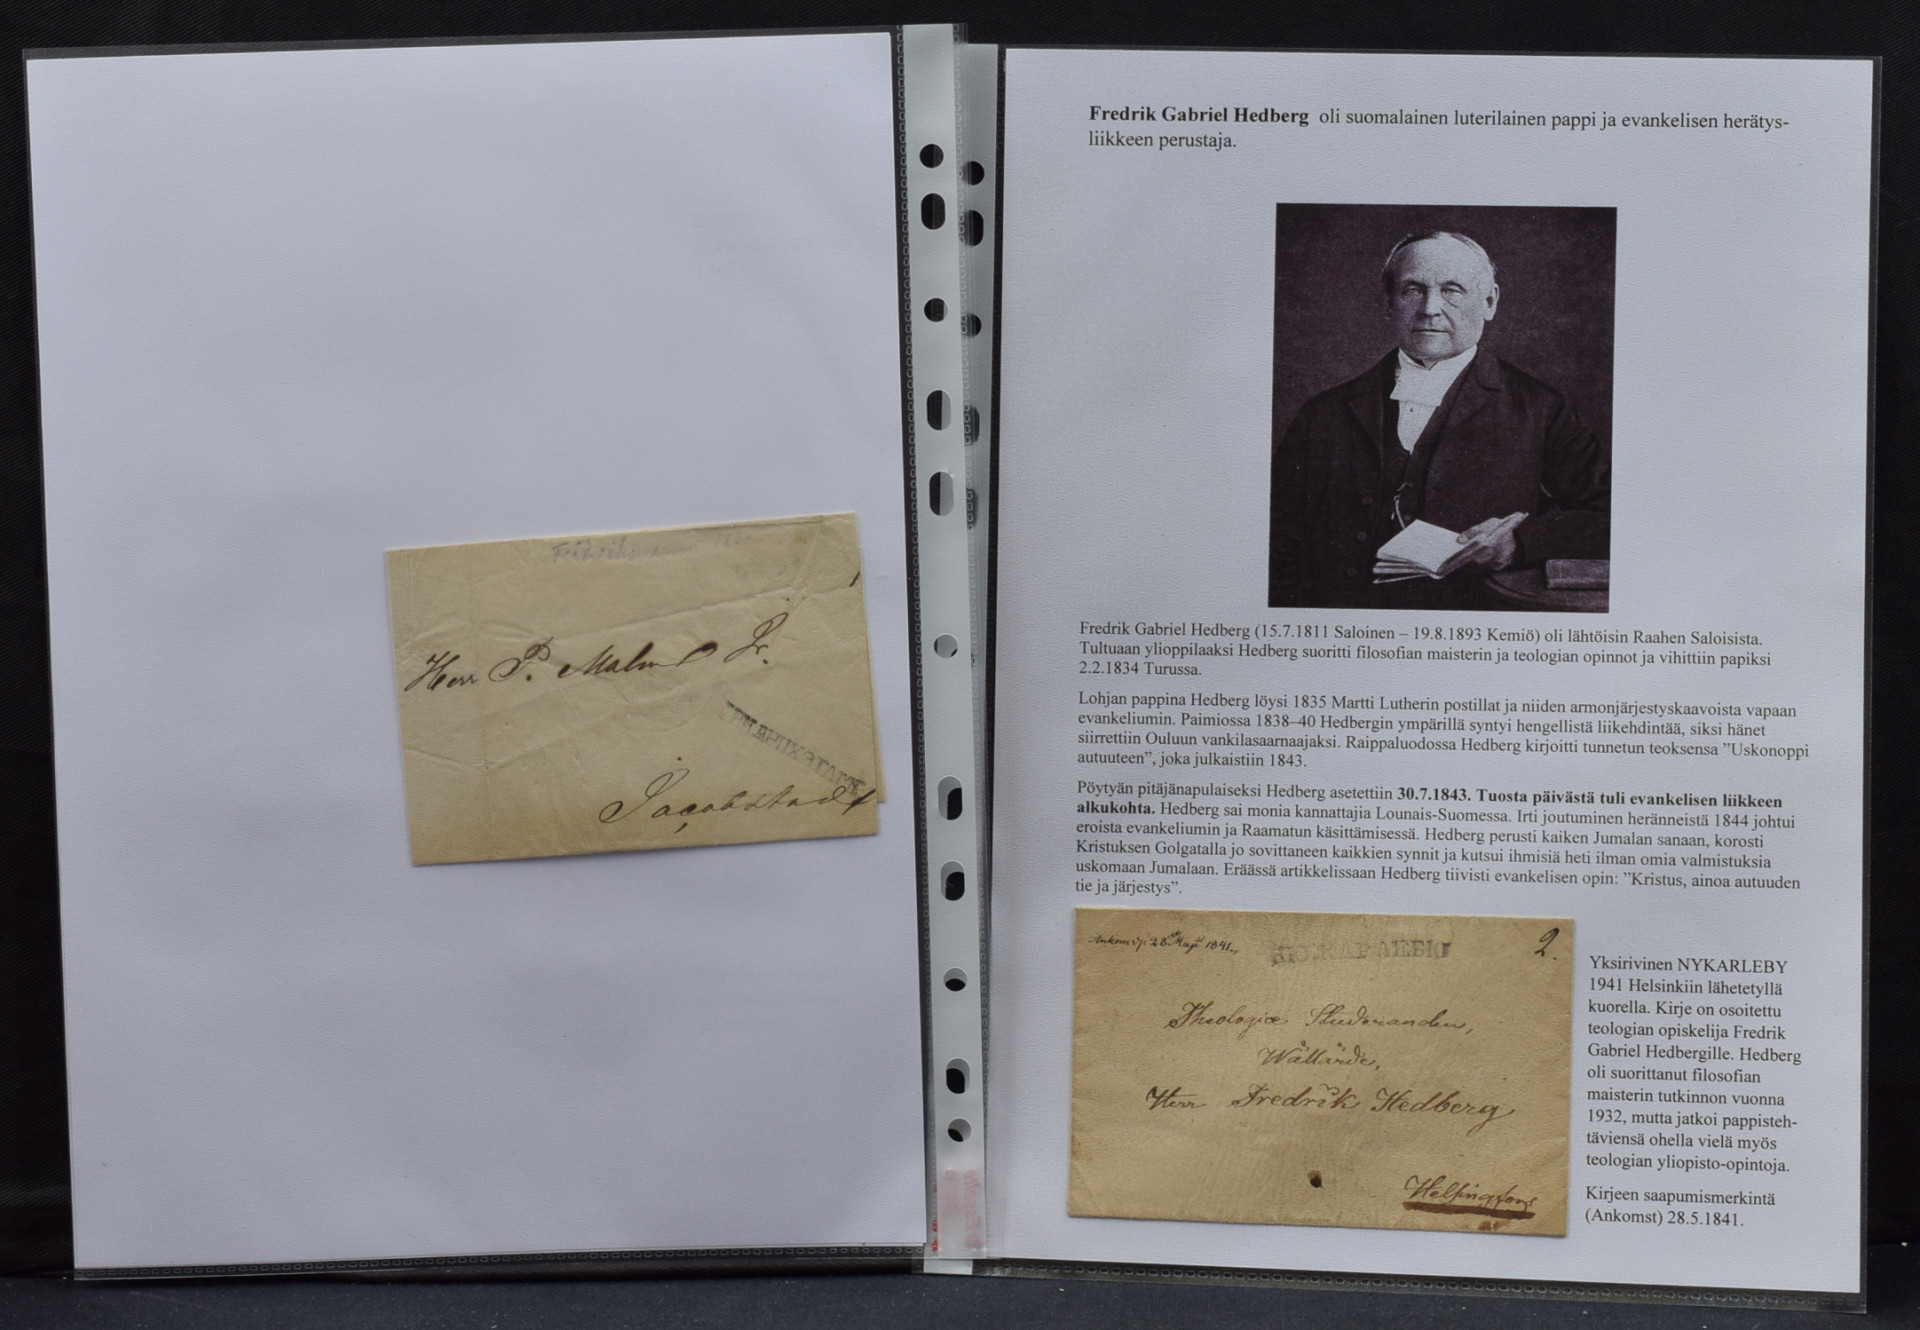 Herr P. Malm Jr.
Jacobstad
Fredrik Gabriel Hedberg oli suomalainen luterilainen pappi ja evankelisen herätys-
liikkeen perustaja.
Fredrik Gabriel Hedberg (15.7.1811 Saloinen – 19.8.1893 Kemiö) oli lähtöisin Raahen Saloisista.
Tultuaan ylioppilaaksi Hedberg suoritti filosofian maisterin ja teologian opinnot ja vihittiin papiksi
2.2.1834 Turussa.
Lohjan pappina Hedberg löysi 1835 Martti Lutherin postillat ja niiden armonjärjestyskaavoista vapaan
evankeliumin. Paimiossa 1838–40 Hedbergin ympärillä syntyi hengellistä liikehdintää, siksi hänet
siirrettiin Ouluun vankilasaarnaajaksi. Raippaluodossa Hedberg kirjoitti tunnetun teoksensa ”Uskonoppi
autuuteen”, joka julkaistiin 1843.
Pöytyän pitäjänapulaiseksi Hedberg asetettiin 30.7.1843. Tuosta päivästä tuli evankelisen liikkeen
alkukohta. Hedberg sai monia kannattajia Lounais-Suomessa. Irti joutuminen heränneistä 1844 johtui
eroista evankeliumin ja Raamatun käsittämisessä. Hedberg perusti kaiken Jumalan sanaan, korosti
Kristuksen Golgatalla jo sovittaneen kaikkien synnit ja kutsui ihmisiä heti ilman omia valmistuksia
uskomaan Jumalaan. Eräässä artikkelissaan Hedberg tiivisti evankelisen opin: ”Kristus, ainoa autuuden
tie ja järjestys”.
28 Maji 1841.
2.
Theologiæ Studeranden,
Herr Fredrik Hedberg
Helsingfors
Yksirivinen NYKARLEBY
1941 Helsinkiin lähetetyllä
kuorella. Kirje on osoitettu
teologian opiskelija Fredrik
Gabriel Hedbergille. Hedberg
oli suorittanut filosofian
maisterin tutkinnon vuonna
1932, mutta jatkoi pappisteh-
täviensä ohella vielä myös
teologian yliopisto-opintoja.
Kirjeen saapumismerkintä
(Ankomst) 28.5.1841.